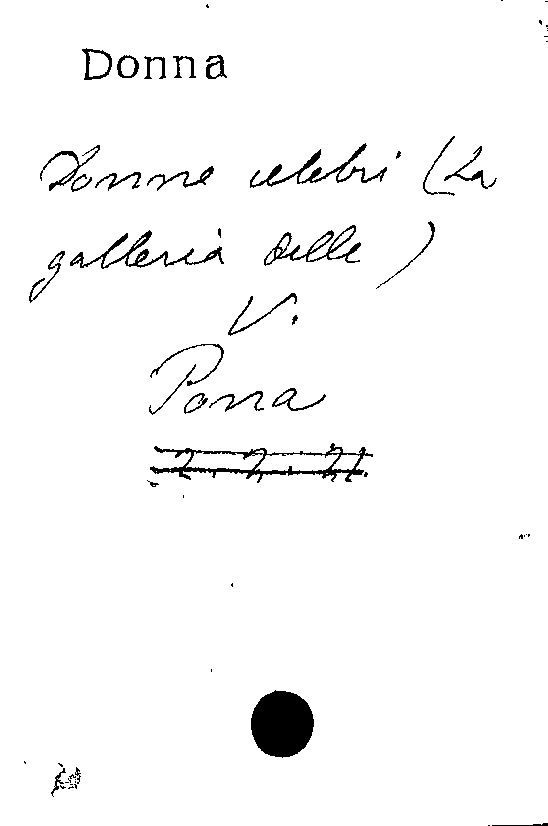 Donna
Donne celebri (La
galleria delle)
V.
Pona
2. 2. 21.